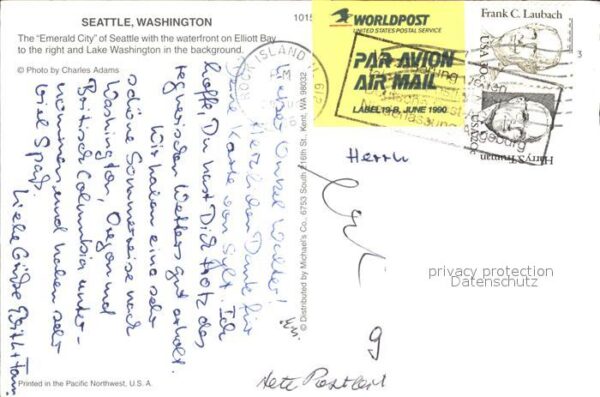 SEATTLE, WASHINGTON
1015
The "Emerald City" of Seattle with the waterfront on Elliott Bay
to the right and Lake Washington in the background.
© Photo by Charles Adams
Lieber Onkel Walter!
Herzlichen Dank für
Deine Karte von Sylt. Ich
hoffe, Du hast Dich trotz des
regnerischen Wetters gut erholt.
Wir haben eine sehr
schöne Sommerreise nach
Washington, Oregon und
British Columbia unter-
nommen und haben sehr
viel Spaß.
Liebe Grüße
Printed in the Pacific Northwest, U.S.A.
© Distributed by Michael's Co., 6753 South 216th St., Kent, WA 98032
WORLDPOST
UNITED STATES POSTAL SERVICE
PAR AVION
AIR MAIL
LABEL 19-B, JUNE 1990
ROCK ISLAND IL 612
Frank C. Laubach
USA 30c
Harry S. Truman
3
Herrn
9
privacy protection
Datenschutz